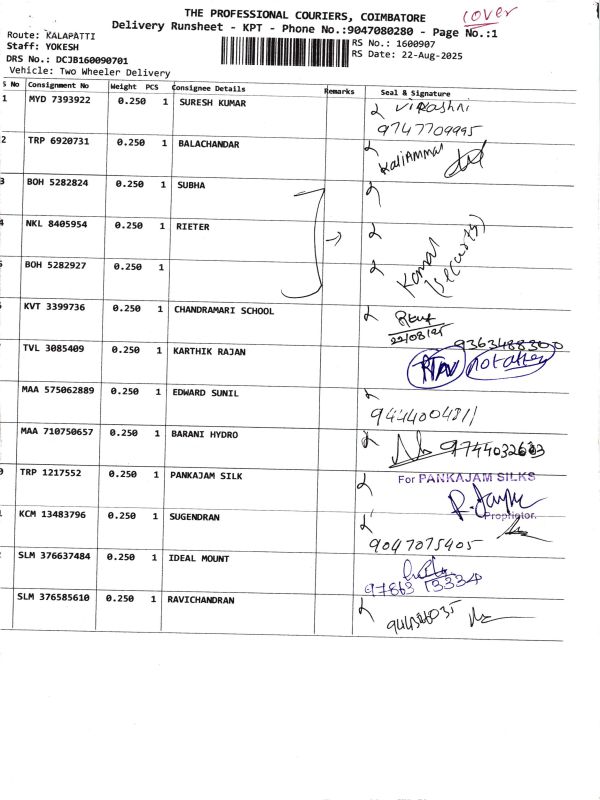 THE PROFESSIONAL COURIERS, COIMBATORE
cover
Delivery Runsheet - KPT - Phone No.:9047080280 - Page No.:1
Route: KALAPATTI
RS No.: 1600907
Staff: YOKESH
RS Date: 22-Aug-2025
DRS No.: DCJB160090701
Vehicle: Two Wheeler Delivery
S No Consignment No Weight PCS Consignee Details Remarks Seal & Signature
1 MYD 7393922 0.250 1 SURESH KUMAR
9747709995
2 TRP 6920731 0.250 1 BALACHANDAR KaliAmmal
3 BOH 5282824 0.250 1 SUBHA
4 NKL 8405954 0.250 1 RIETER
Komal (Security)
BOH 5282927 0.250 1
KVT 3399736 0.250 1 CHANDRAMARI SCHOOL
22/08/25
TVL 3085409 0.250 1 KARTHIK RAJAN 9363488300
RTN
MAA 575062889 0.250 1 EDWARD SUNIL
MAA 710750657 0.250 1 BARANI HYDRO
TRP 1217552 1 0.250 PANKAJAM SILK
For PANKAJAM SILKS
Proprietor.
KCM 13483796 0.250 1 SUGENDRAN
9047075405
SLM 376637484 0.250 1 IDEAL MOUNT
97863 13334
SLM 376585610 0.250 1 RAVICHANDRAN